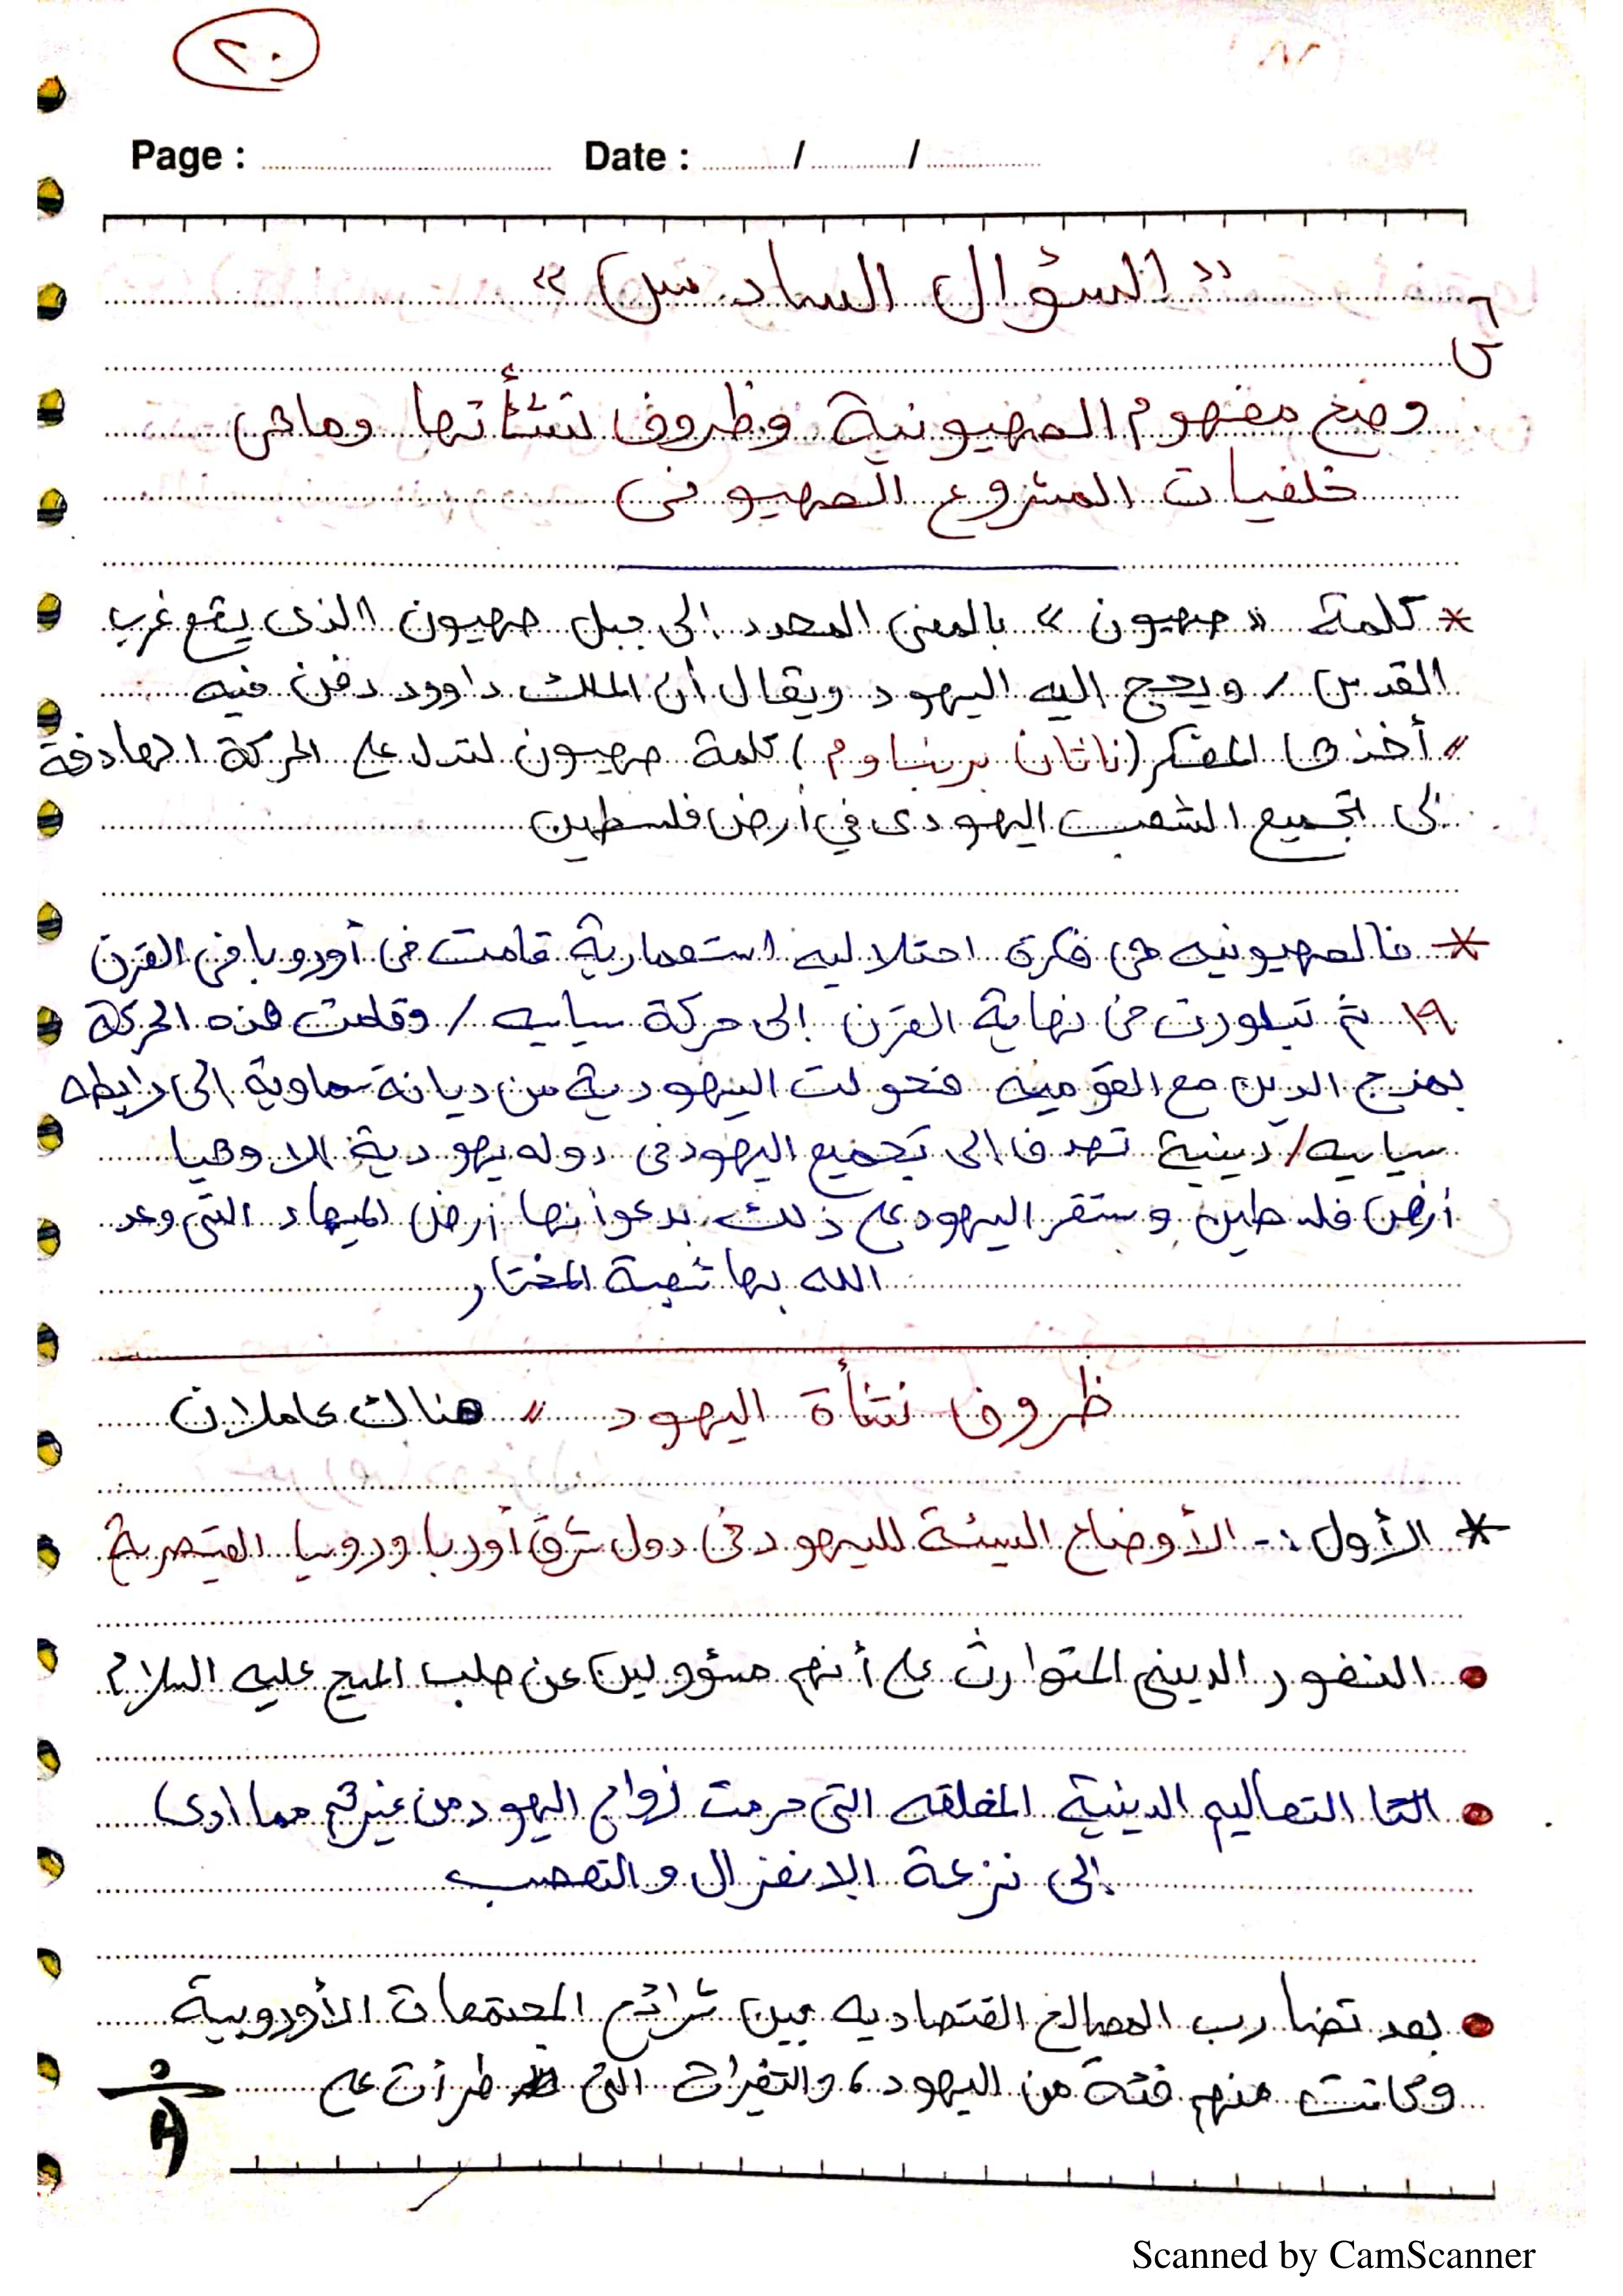 ٢٠
Page : Date : / /
" السؤال السادس "
س٦
وضح مفهوم الصهيونية وظروف نشأتها وماهى
خلفيات المشروع الصهيونى
* كلمة " صهيون " بالمعنى المحدد إلى جبل صهيون الذى يقع غرب
القدس / ويحج اليه اليهود ويقال أن الملك داوود دفن فيه
" أخذها المفكر (ناثان برنباوم) كلمة صهيون لتدل على الحركة الهادفة
إلى تجميع الشعب اليهودى في أرض فلسطين
* فالصهيونيه هى فكرة احتلاليه استعمارية قامت فى أوروبا فى القرن
١٩ ثم تبلورت فى نهاية القرن إلى حركة سياسيه / وقامت هذه الحركة
بمزج الدين مع القوميه فتحولت اليهودية من ديانة سماوية الى رابطه
سياسيه / دينية تهدف الى تجميع اليهود فى دوله يهودية الا وهيا
أرض فلسطين وستقر اليهود على ذلك بدعوا نها أرض الميعاد التى وعد
الله بها شعبة المختار
ظروف نشأة اليهود " هناك عاملان
* الأول :- الأوضاع السيئة لليهود فى دول شرق أوربا وروسيا القيصرية
● النفور الدينى المتوارث على أنهم مسؤولين عن صلب المسيح عليه السلام
● التعاليم الدينية المغلقه التى حرمت زواج اليهود من غيرهم مما ادى
إلى نزعة الانعزال والتعصب
● بعد تضارب المصالح القتصاديه بين شرائح المجتمعات الأوروبية
وكانت منهم فئة من اليهود ، والتغيرات التى طرأت على
Scanned by CamScanner